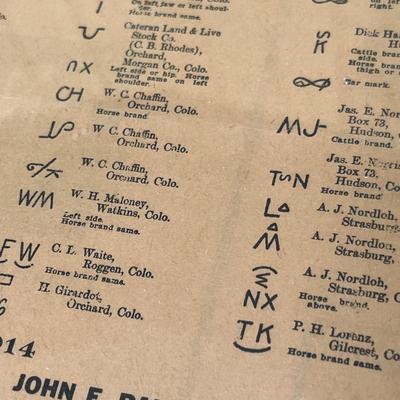 On left jaw or left shoul-
der.
Horse brand same.
Cateran Land & Live
Stock Co.
(C. B. Rhodes),
Orchard,
Morgan Co., Colo.
Left side or hip. Horse
brand same on left
shoulder.
UX
W. C. Chaffin,
Orchard, Colo.
Horse brand
CH
W. C. Chaffin,
Orchard, Colo.
W. C. Chaffin,
Orchard, Colo.
WM
W. H. Maloney,
Watkins, Colo.
Left side.
Horse brand same.
FW
C. L. Waite,
Roggen, Colo.
Horse brand same.
H. Girardot,
Orchard, Colo.
914
JOHN E.
right.
S
K
Dick
Cattle brand
side.
Horse
thigh or
Ear mark.
MJ
Jas. E.
Box 73,
Hudson,
Cattle brand.
TSN
Jas. E.
Box 73,
Hudson, Co
Horse brand
A. J. Nordloh,
Strasburg,
A. J. Nordloh,
Strasburg,
NX
A. J. Nordloh,
Strasburg, C
Horse brand.
above.
TK
P. H. Lorenz,
Gilcrest, Co
Horse brand same.